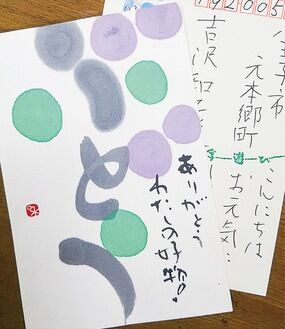 ありがとう
わたしの好物。
192005
八王子市
元本郷町
吉沢和
字遊び
こんにちは
お元気…